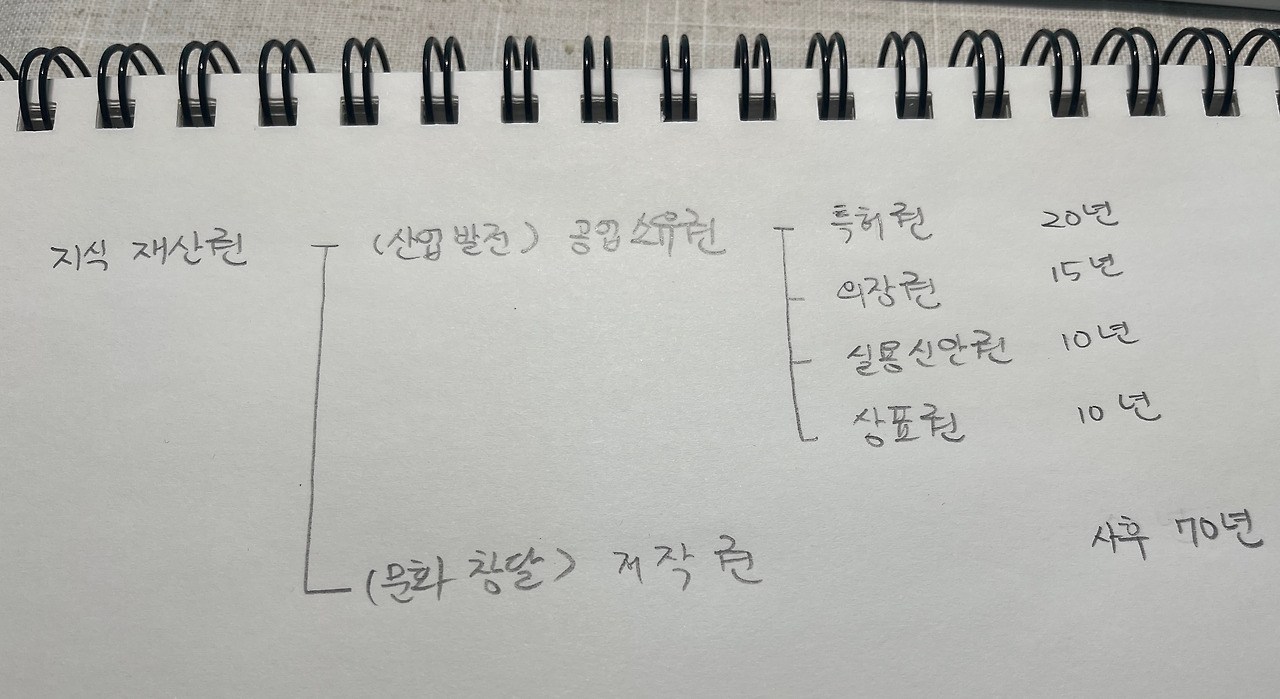 지식 재산권 (산업 발전) 공업 소유권 특허권 20년
의장권 15년
실용신안권 10년
상표권 10년
(문화 창달) 저작권 사후 70년